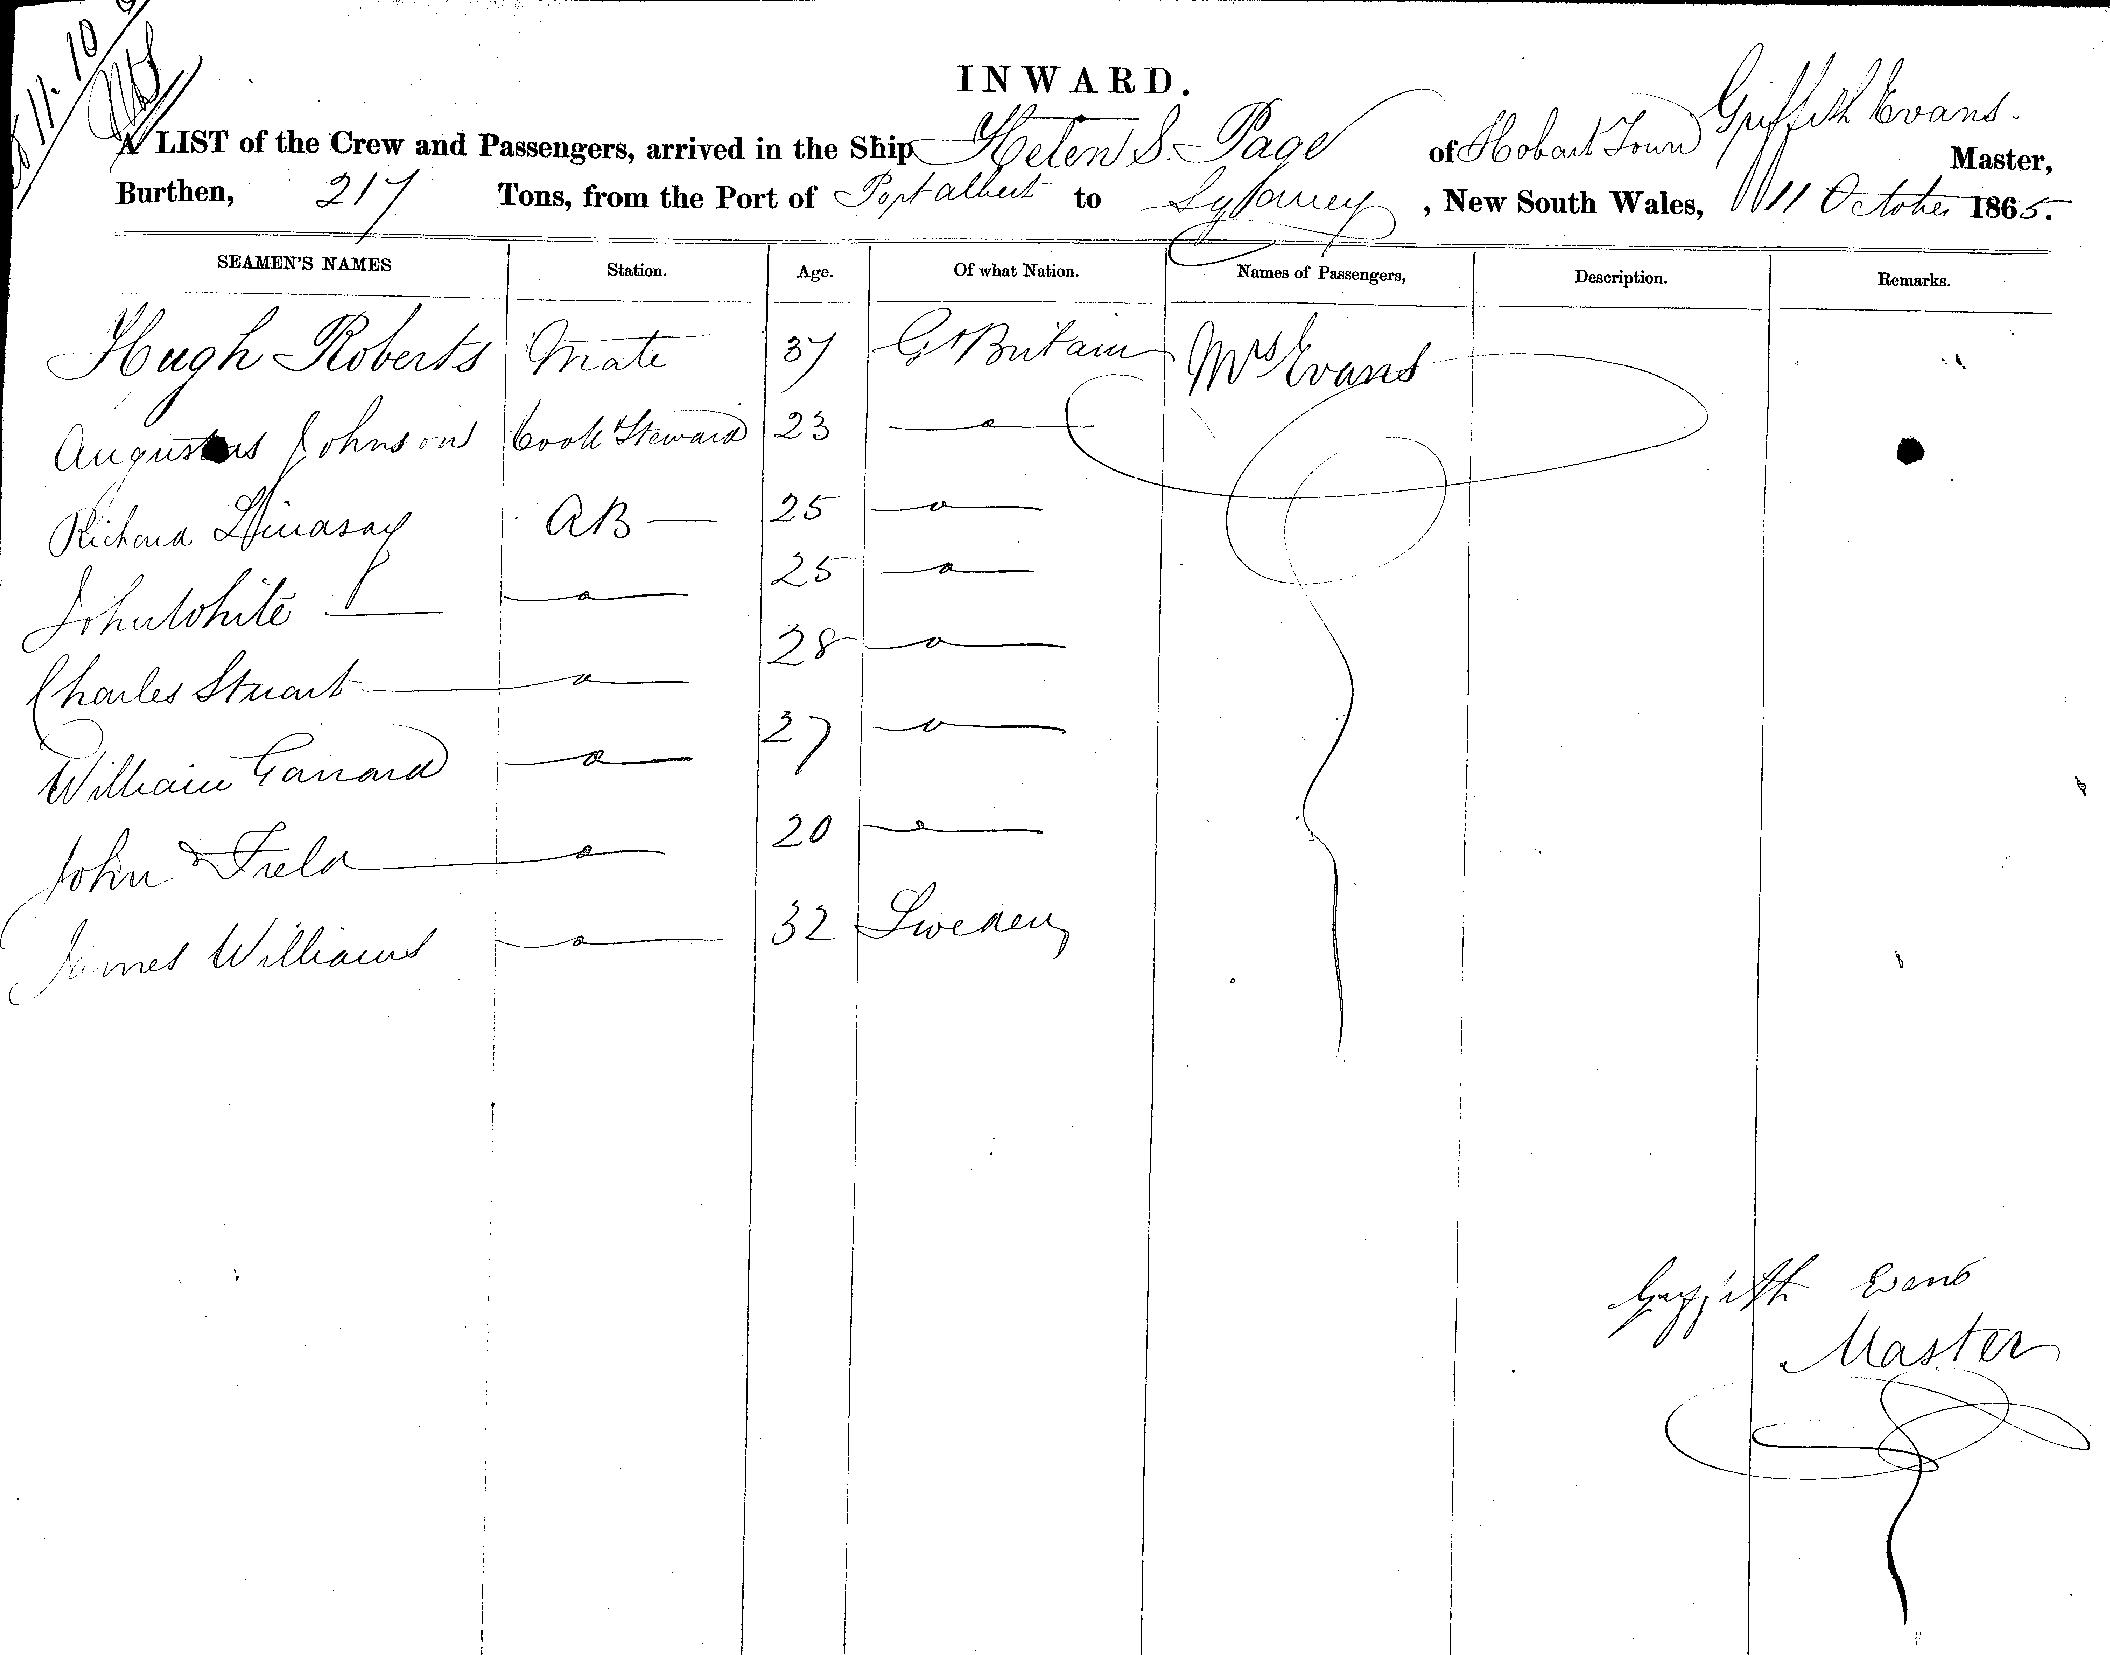 11. 10
INWARD.
A LIST of the Crew and Passengers, arrived in the Ship Helen S. Page of Hobart Town Griffith Evans. Master,
Burthen, 217 Tons, from the Port of Port Albert to Sydney, New South Wales, 11 October 1865.
SEAMEN'S NAMES Station. Age. Of what Nation. Names of Passengers, Description. Remarks.
Hugh Roberts Mate 37 Gt Britain Mrs Evans
Augustus Johnson Cook & Steward 23 — o —
Richard Lindsay AB — 25 — o —
John White — — o — 25 — o —
Charles Stuart — o — 28 — o —
William Garrard — o — 27 — o —
John Field — o — 20 — o —
James Williams — o — 32 Sweden
Griffith Evans
Master